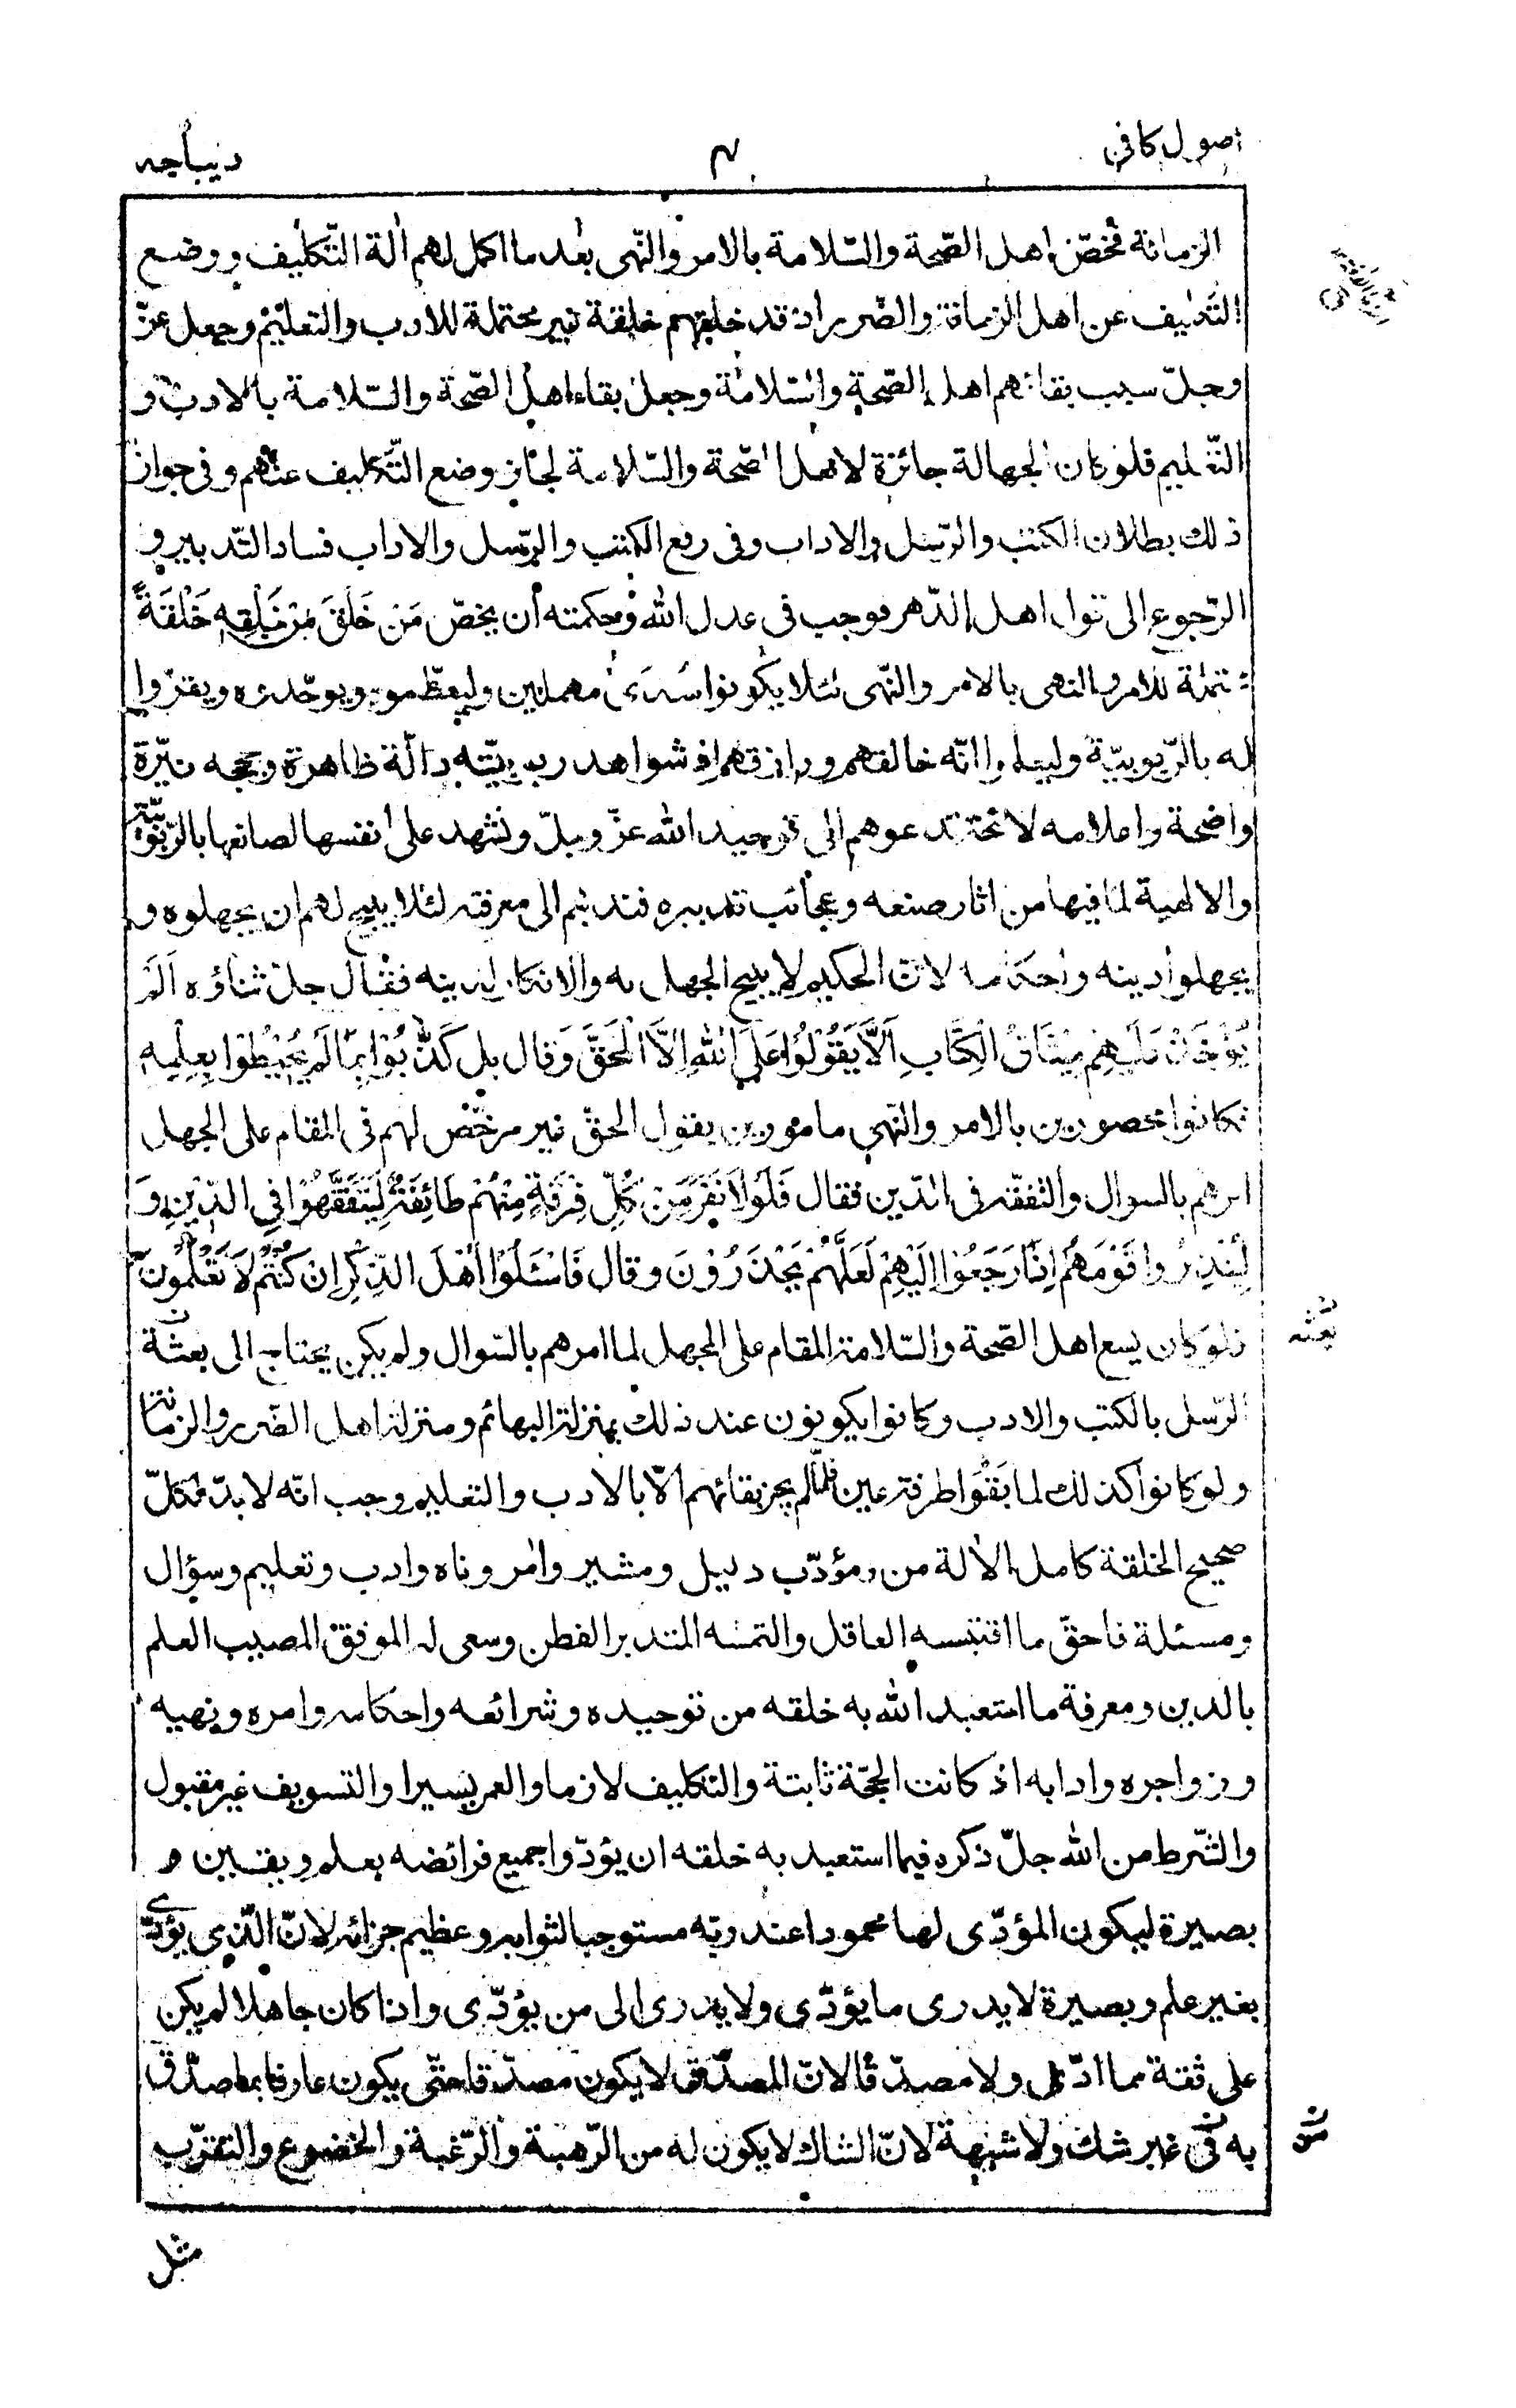 اصول كافى
۴
ديباچه
الزمانة فخصّ اهل الصّحة والسّلامة بالامر والنّهى بعد ما اكمل لهم الة التّكليف ووضع
التّكليف عن اهل الزمانة والضّرر اذ قد خلقهم خلقة غير محتملة للادب والتعليم وجعل عزّ
وجلّ سبب بقائهم اهل الصّحة والسّلامة وجعل بقاء اهل الصّحة والسّلامة بالادب و
التّعليم فلو كان الجهالة جائزة لاهل الصّحة والسّلامة لجاز وضع التّكليف عنهم وفى جواز
ذلك بطلان الكتب والرّسل والاداب وفى رفع الكتب والرّسل والاداب فساد التّدبير و
الرّجوع الى قول اهل الدّهر فوجب فى عدل الله وحكمته أن يخصّ مَن خَلَقَ مِنْ خَلْقِهِ خَلْقَةً
محتملة للامر والنهى بالامر والنّهى لئلا يكونوا سُدىً مهملين وليعظّموه ويوحّدوه ويقرّوا
له بالرّبوبيّة وليعلموا انّه خالقهم ورازقهم اذ شواهد ربوبيّته دالّة ظاهرة وحججه نيّرة
واضحة واعلامه لائحة تدعوهم الى توحيد الله عزّ وجلّ وتشهد على انفسها لصانعها بالرّبوبيّة
والالهية لما فيها من اثار صنعه وعجائب تدبيره فندبهم الى معرفته لئلا يبيح لهم ان يجهلوه و
يجهلوا دينه واحكامه لانّ الحكيم لا يبيح الجهل به والانكار لدينه فقال جلّ ثناؤه اَلَمْ
يُؤْخَذْ عَلَيْهِمْ مِيْثَاقُ الْكِتَابِ اَلَّا يَقُوْلُوْا عَلَى اللهِ اِلَّا الْحَقَّ وَقال بل كَذَّبُوْا بِمَا لَمْ يُحِيْطُوْا بِعِلْمِهِ
فكانوا محصورين بالامر والنّهى مامورين بقول الحقّ غير مرخّص لهم فى المقام على الجهل
امرهم بالسوال والتفقّه فى الدّين فقال فَلَوْلَا نَفَرَ مِنْ كُلِّ فِرْقَةٍ مِنْهُمْ طَائِفَةٌ لِيَتَفَقَّهُوْا فِي الدِّيْنِ وَ
لِيُنْذِرُوا قَوْمَهُمْ اِذَا رَجَعُوْا اِلَيْهِمْ لَعَلَّهُمْ يَحْذَرُوْنَ وقال فَاسْئَلُوْا اَهْلَ الذِّكْرِ اِنْ كُنْتُمْ لَا تَعْلَمُوْنَ
فلو كان يسع اهل الصّحة والسّلامة المقام على الجهل لما امرهم بالسّوال ولم يكن يحتاج الى بعثة
بعثه
الرّسل بالكتب والادب وكانوا يكونون عند ذلك بمنزلة البهائم ومنزلة اهل الضّرر والزمانة
ولو كانوا كذلك لما بَقَوْا طرفة عين فلمّا لم يجز بقائهم الّا بالادب والتعليم وجب انّه لا بدّ لكلّ
صحيح الخلقة كامل الالة من مؤدّب ودليل ومشير وامر وناه وادب وتعليم وسؤال
ومسئلة فاحقّ ما اقتبسه العاقل والتمسه المتدبر الفطن وسعى له الموفق المصيب العلم
بالدين ومعرفة ما استعبد الله به خلقه من توحيده وشرائعه واحكامه وامره ونهيه
وزواجره وادابه اذ كانت الحجّة ثابتة والتكليف لازما والعمر يسيرا والتسويف غير مقبول
والشّرط من الله جلّ ذكره فيما استعبد به خلقه ان يؤدّوا جميع فرائضه بعلم ويقين و
بصيرة ليكون المؤدّى لها محمودا عند ربّه مستوجبا لثوابه وعظيم جزائه لانّ الّذى يؤدّى
بغير علم وبصيرة لا يدرى ما يؤدّى ولا يدرى الى من يؤدّى واذا كان جاهلا لم يكن
على ثقة مما ادّى ولا مصدّقا لانّ المصدّق لا يكون مصدّقا حتّى يكون عارفا بما صدّق
به فى غير شك ولا شبهة لانّ الشاك لا يكون له من الرّهبة والرّغبة والخضوع والتقرّب
مثل